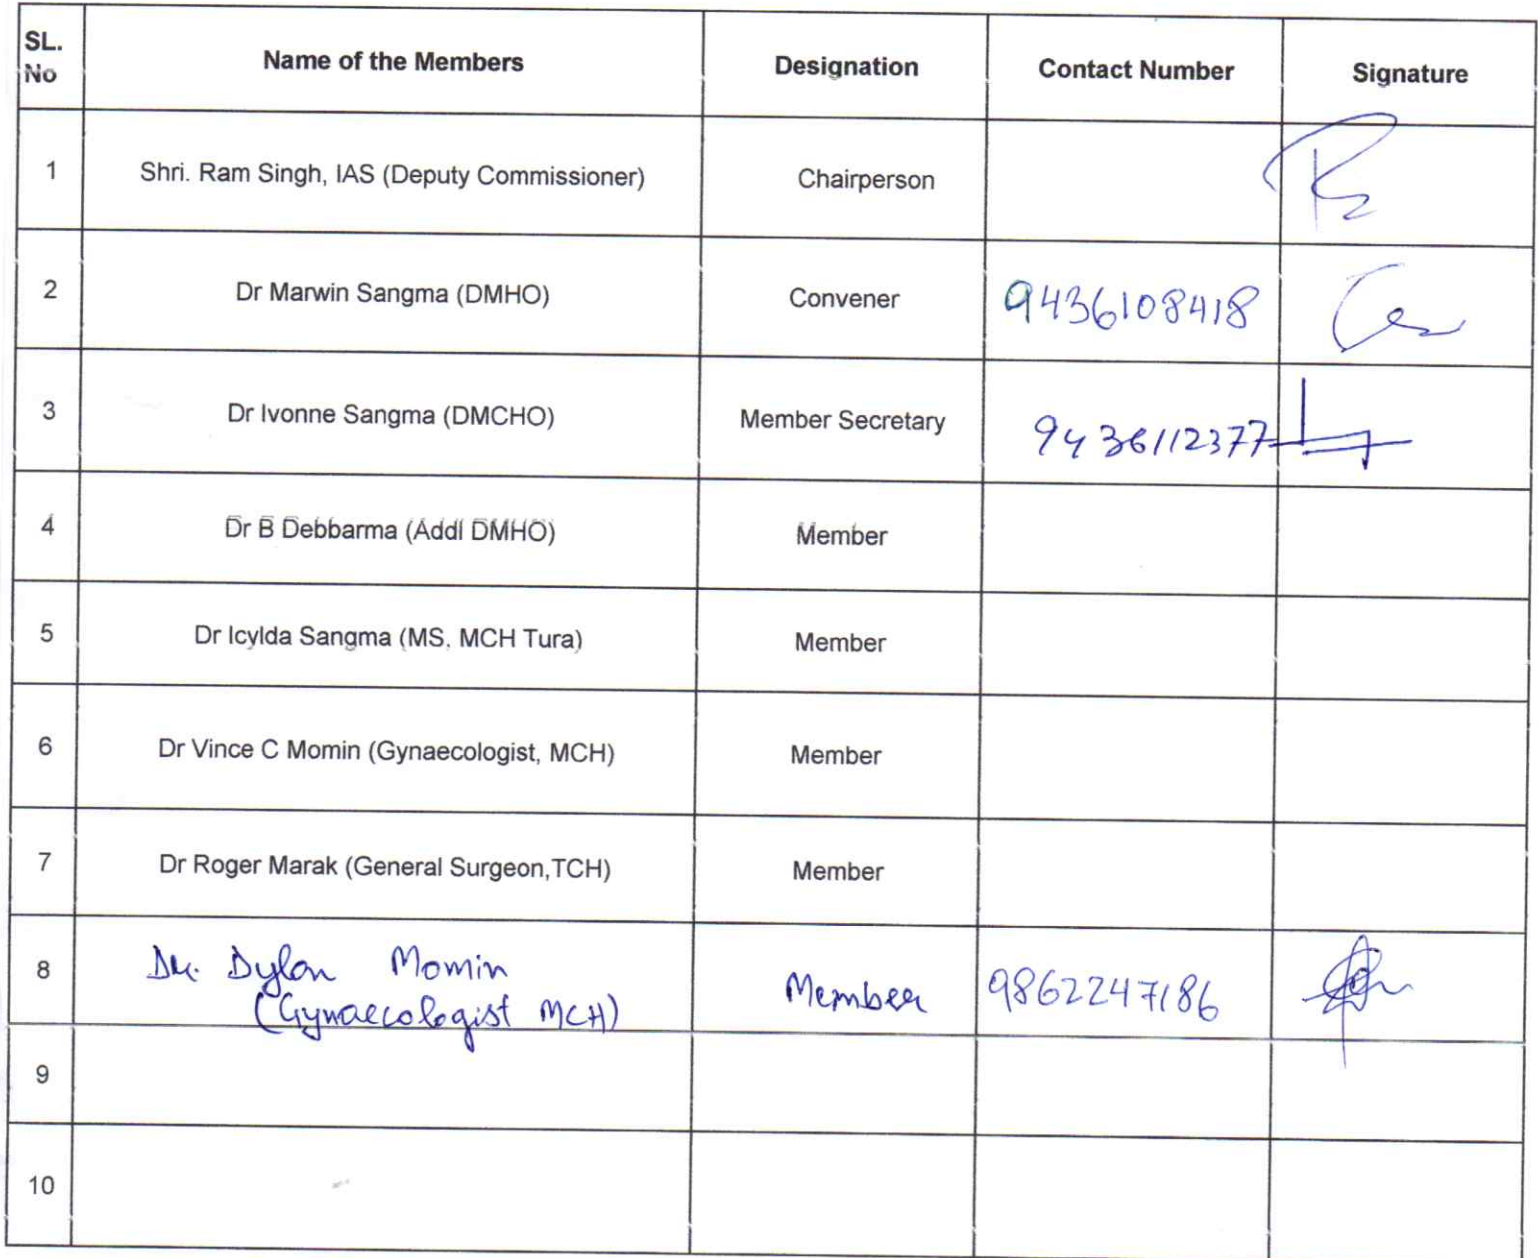 SL. No Name of the Members Designation Contact Number Signature
1 Shri. Ram Singh, IAS (Deputy Commissioner) Chairperson
2 Dr Marwin Sangma (DMHO) Convener 9436108418
3 Dr Ivonne Sangma (DMCHO) Member Secretary 9436112377
4 Dr B Debbarma (Addl DMHO) Member
5 Dr Icylda Sangma (MS, MCH Tura) Member
6 Dr Vince C Momin (Gynaecologist, MCH) Member
7 Dr Roger Marak (General Surgeon,TCH) Member
8 Dr. Dylan Momin Member 9862247186
(Gynaecologist MCH)
9
10